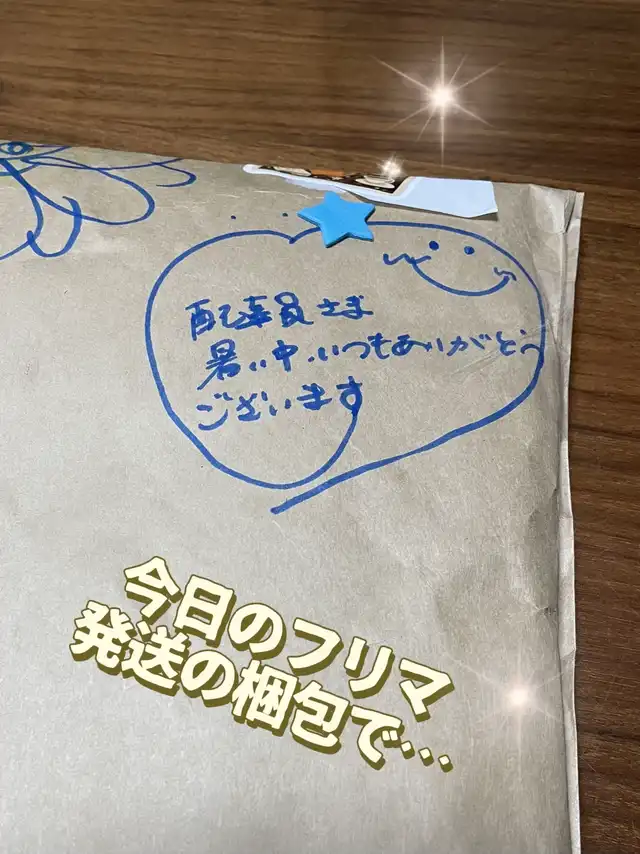 配達員さま
暑い中、いつもありがとう
ございます
今日のフリマ
発送の梱包で…